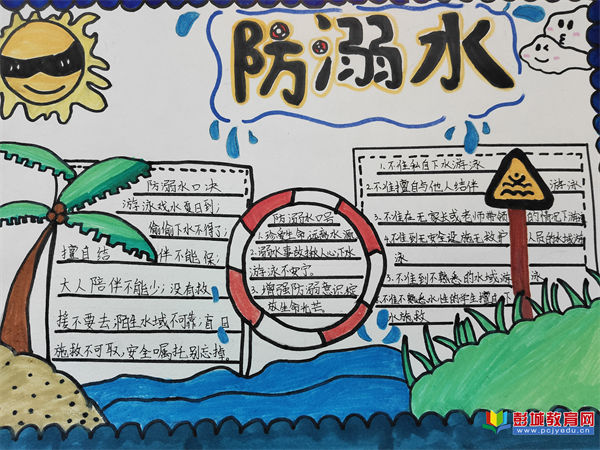 防溺水
防溺水口决
游泳戏水夏日到；
偷偷下水不得了；
擅自结伴不能保；
大人陪伴不能少；没有救
援不要去；陌生水域不可靠；盲目
施救不可取，安全嘱托别忘掉。
防溺水口号
1.珍爱生命远离水源
2.溺水事故揪人心下水
游泳不安宁。
3.增强防溺意识绽
放生命光芒。
1.不准私自下水游泳
2.不准擅自与他人结伴游泳
3.不准在无家长或老师带领的情况下游泳
4.不准到无安全设施无救护人员的水域游
泳
5.不准到不熟悉的水域游泳
不准不熟悉水性的学生擅自下
水施救
彭城教育网
www.pcjyedu.cn